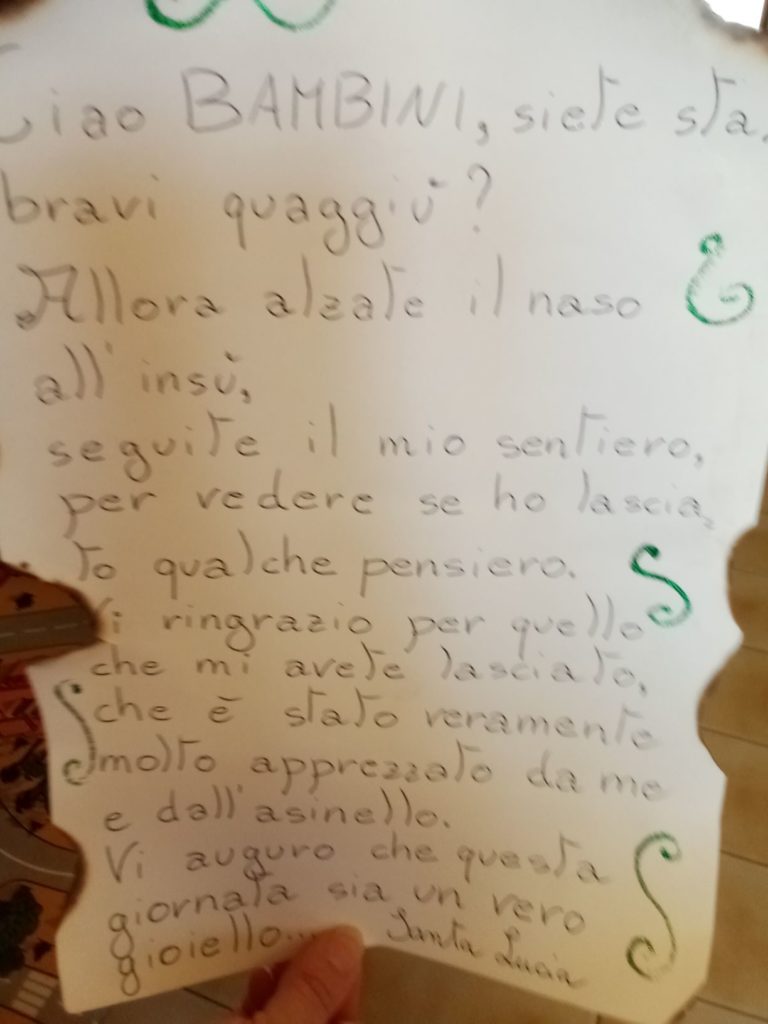 Ciao BAMBINI, siete sta
bravi quaggiù?
Allora alzate il naso
all'insù,
seguite il mio sentiero,
per vedere se ho lascia
to qualche pensiero.
Vi ringrazio per quello
che mi avete lasciato,
che è stato veramente
molto apprezzato da me
e dall'asinello.
Vi auguro che questa
giornata sia un vero
gioiello... Santa Lucia